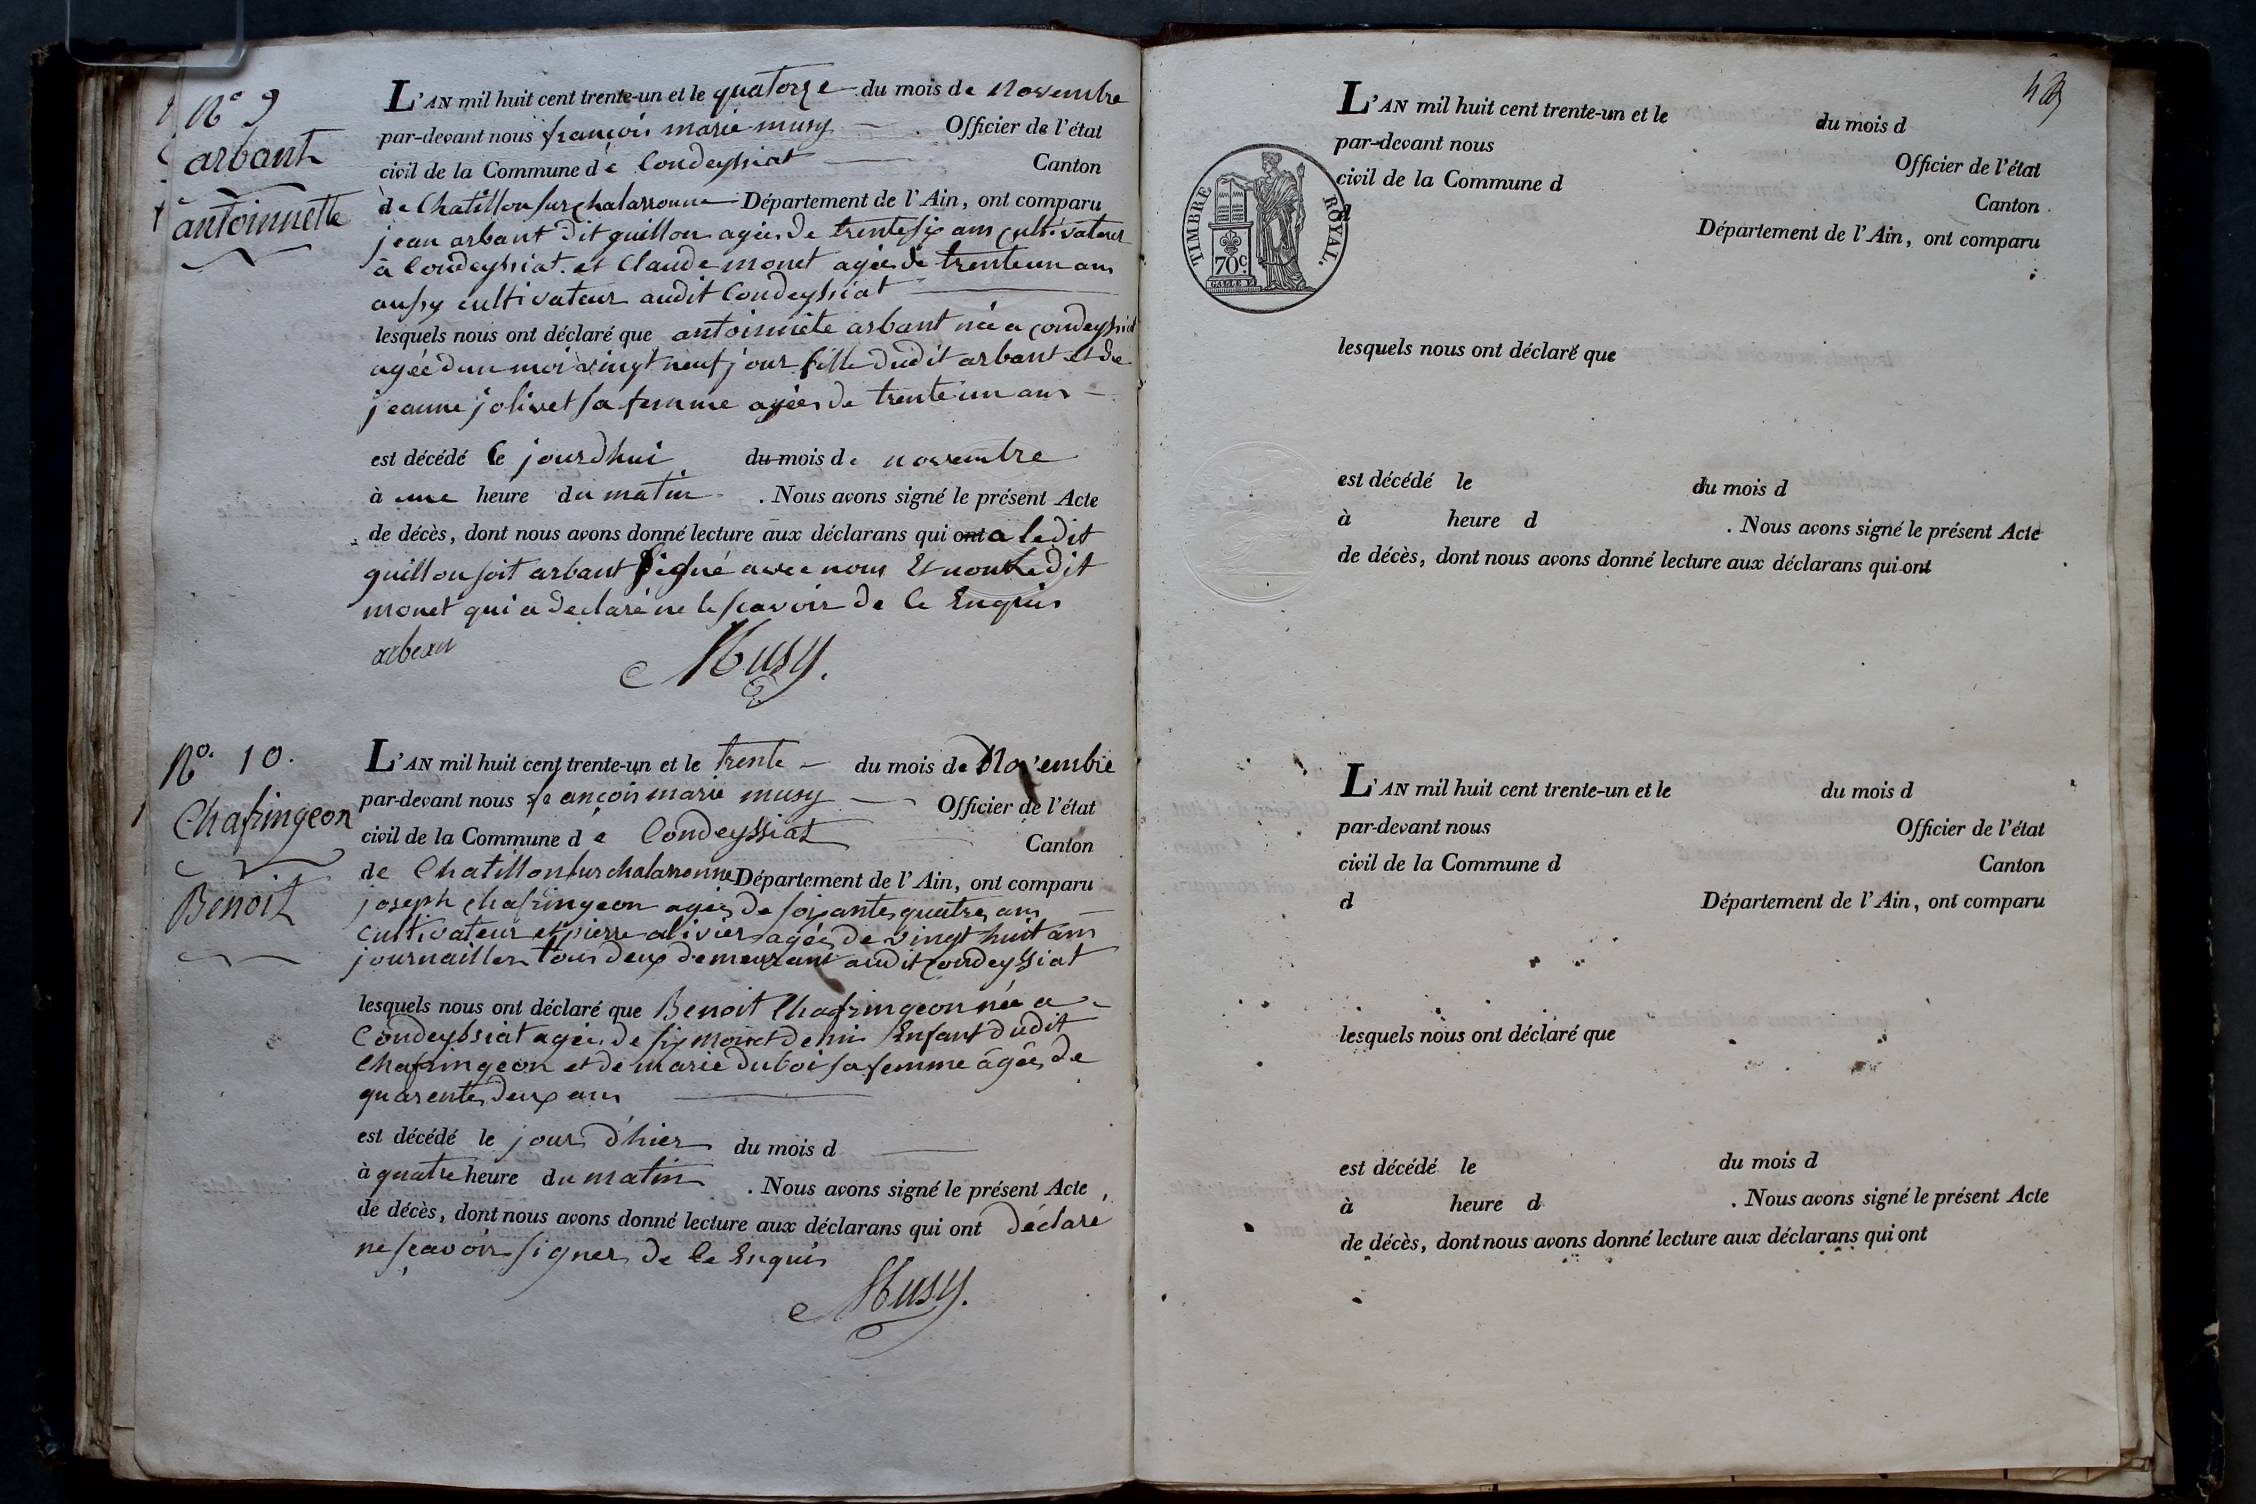 N.° 9
arbant
antoinnette
L'AN mil huit cent trente-un et le quatorze du mois de Novembre
par-devant nous françois marie musy Officier de l'état
civil de la Commune de Condeyssiat Canton
de Chatillon sur chalaronne Département de l'Ain, ont comparu
jean arbant dit guillon agée de trente six ans cultivateur
à Condeyssiat et Claude monet agée de trente un ans
aussy cultivateur audit Condeyssiat
lesquels nous ont déclaré que antoinnete arbant née a condeyssiat
agée d'un moi vingt neuf jour fille dudit arbant et de
jeanne jolivet sa femme agée de trente un ans
est décédé le jourd'hui du mois de novembre
à une heure du matin . Nous avons signé le présent Acte
de décès, dont nous avons donné lecture aux déclarans qui ont a ledit
guillon soit arbant signé avec nous Et non ledit
monet qui a declaré ne le scavoir de ce Enquis
arbean
Musy.
N.° 10.
Chafringeon
Benoit
L'AN mil huit cent trente-un et le trente du mois de Novembre
par-devant nous françois marie musy Officier de l'état
civil de la Commune de Condeyssiat Canton
de Chatillon sur chalaronne Département de l'Ain, ont comparu
joseph chafringeon agée de soixante quatre ans
cultivateur et pierre olivier agée de vingt huit ans
journaillier tous deux demeurant audit Condeyssiat
lesquels nous ont déclaré que Benoit Chafringeon née a
Condeyssiat agée de six mois et demi Enfant dudit
Chafringeon et de marie duboi sa femme âgée de
quarente deux ans
est décédé le jour d'hier du mois d
à quatre heure du matin . Nous avons signé le présent Acte
de décès, dont nous avons donné lecture aux déclarans qui ont déclaré
ne sçavoir signer de ce Enquis
Musy.
L'AN mil huit cent trente-un et le du mois d
par-devant nous Officier de l'état
civil de la Commune d Canton
d Département de l'Ain, ont comparu
TIMBRE ROYAL.
70 c.
lesquels nous ont déclaré que
est décédé le du mois d
à heure d . Nous avons signé le présent Acte
de décès, dont nous avons donné lecture aux déclarans qui ont
L'AN mil huit cent trente-un et le du mois d
par-devant nous Officier de l'état
civil de la Commune d Canton
d Département de l'Ain, ont comparu
lesquels nous ont déclaré que
est décédé le du mois d
à heure d . Nous avons signé le présent Acte
de décès, dont nous avons donné lecture aux déclarans qui ont